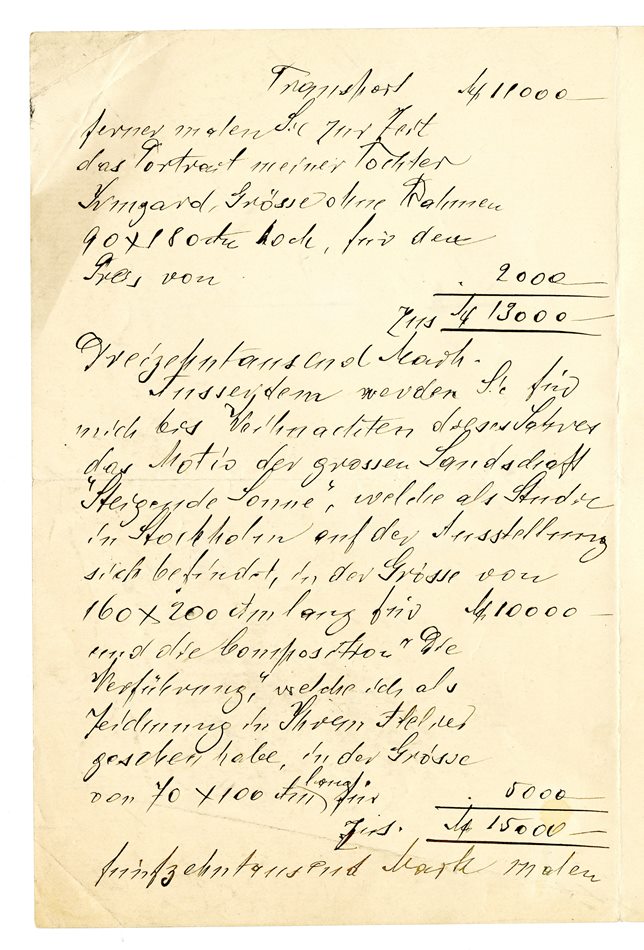 Transport M 11000 —
ferner malen Sie zur Zeit
das Portrait meiner Tochter
Irmgard, Grösse ohne Rahmen
90 x 180 ctm hoch, für den
Preis von . 2000
Zus M 13000 —
Dreizehntausend Mark.
Ausserdem werden Sie für
mich bis Weihnachten dieses Jahres
das Motiv der grossen Landschaft
"Steigende Sonne", welche als Studie
in Stockholm auf der Ausstellung
sich befindet, in der Grösse von
160 x 200 ctm lang für M 10000 —
und die Composition "Die
Verführung", welche ich als
Zeichnung in Ihrem Atelier
gesehen habe, in der Grösse
von 70 x 100 ctm lang für . 5000
Zus. M 15000 —
fünfzehntausend Mark malen